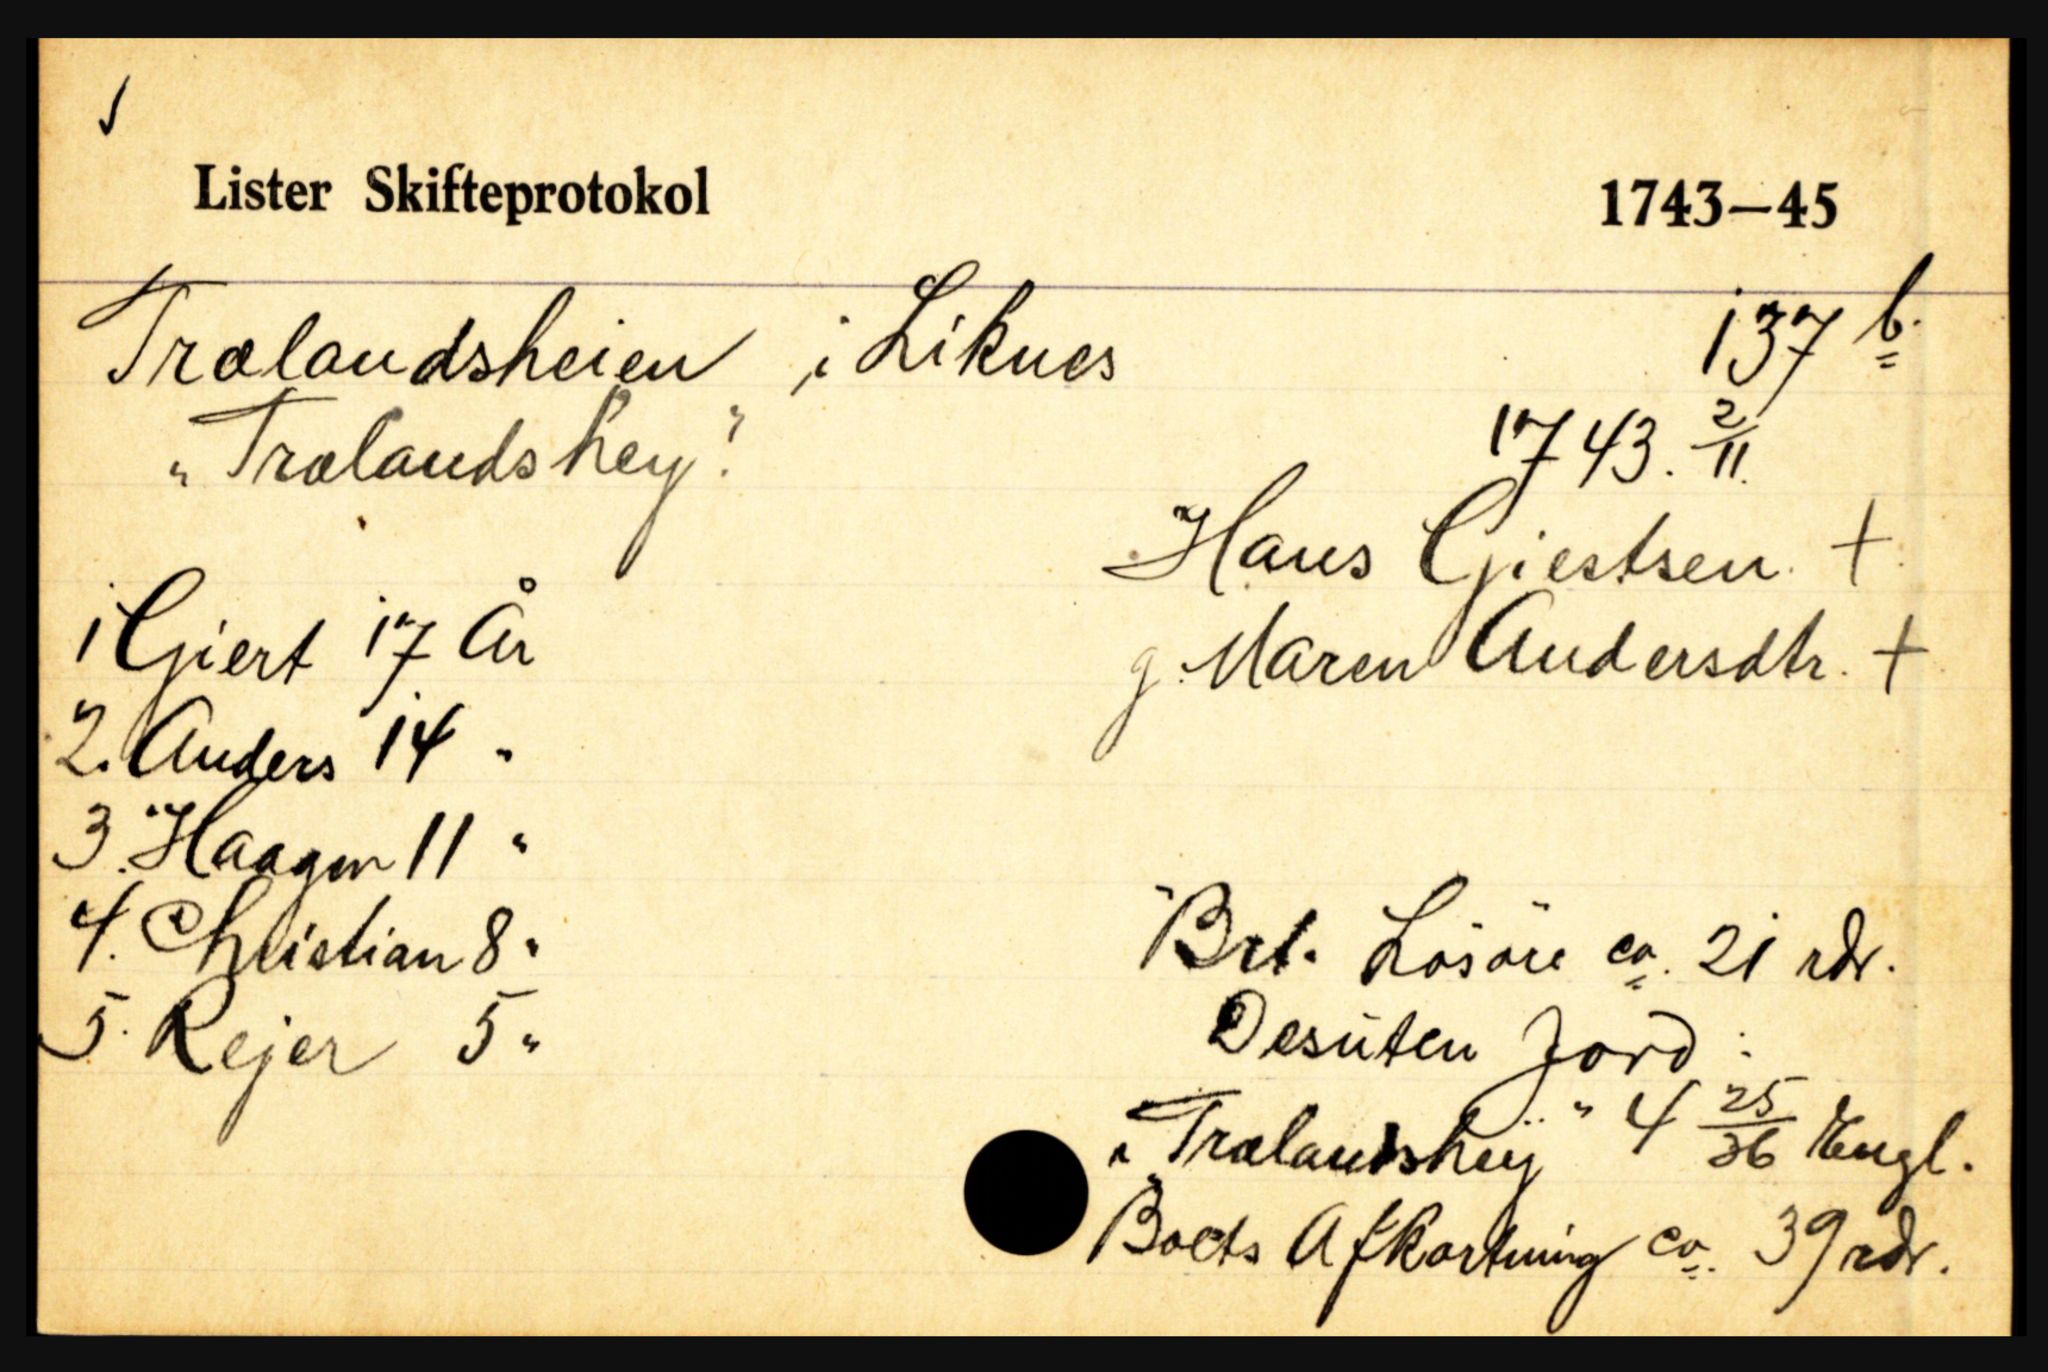 Lister Skifteprotokol 1743–45
Trælandsheien i Liknes 137 b.
"Trælandshey". 1743. 2/11.
Hans Gjestsen. +
1 Gjert 17 År
g. Maren Andersdtr. +
2. Anders 14 "
3. Haagen 11 "
4. Christian 8 "
Brt. Løsøre ca. 21 rdr.
5. Rejer 5 "
Desuten Jord:
"Trælandsheÿ" 4 25/36 Engl.
Boets Afkortning ca. 39 rdr.